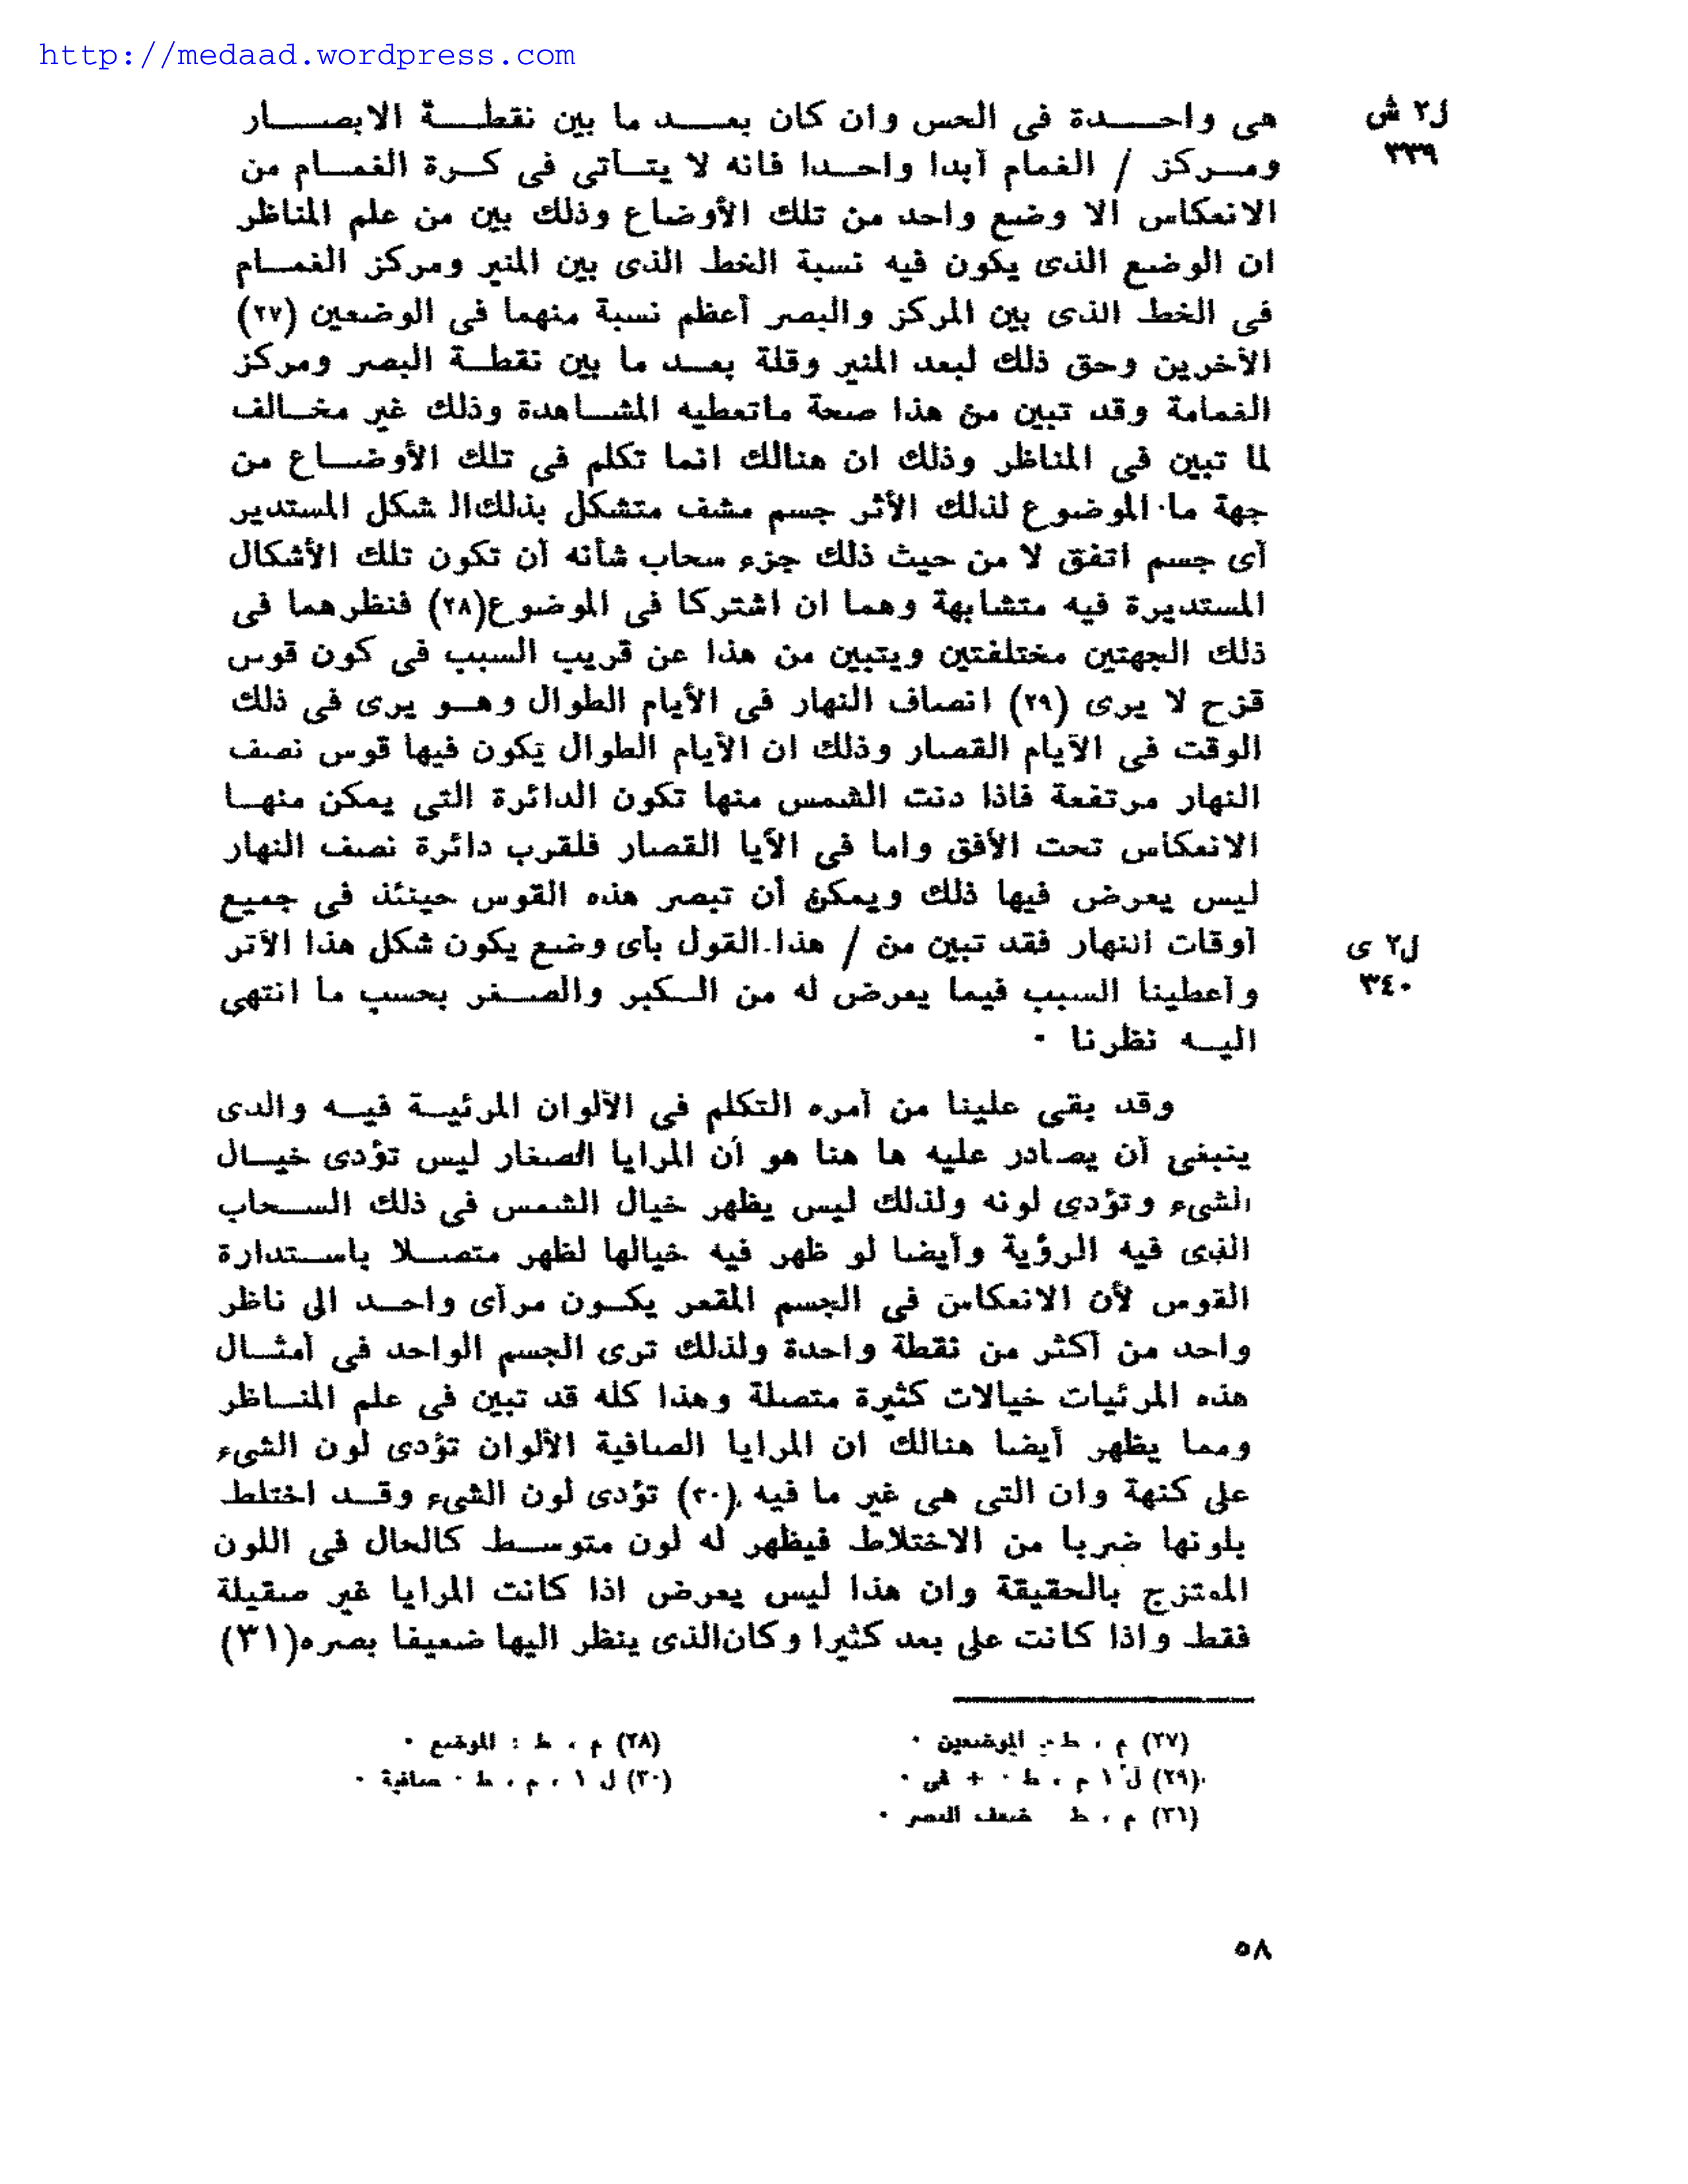 http://medaad.wordpress.com
هى واحـــدة فى الحس وان كان بعـــد ما بين نقطـــة الابصـــار
ل٢ ش
ومـركز / الغمام أبدا واحـدا فانه لا يتـأتى فى كـرة الغمـام من
٣٣٩
الانعكاس الا وضع واحد من تلك الأوضاع وذلك بين من علم المناظر
ان الوضع الذى يكون فيه نسبة الخط الذى بين المنير ومركز الغمـام
فى الخط الذى بين المركز والبصر أعظم نسبة منهما فى الوضعين (٢٧)
الآخرين وحق ذلك لبعد المنير وقلة بعـد ما بين نقطـة البصر ومركز
الغمامة وقد تبين من هذا صحة ماتعطيه المشـاهدة وذلك غير مخـالف
لما تبين فى المناظر وذلك ان هنالك انما تكلم فى تلك الأوضـاع من
جهة ما الموضوع لذلك الأثر جسم مشف متشكل بذلك الـ شكل المستدير
أى جسم اتفق لا من حيث ذلك جزء سحاب شأنه أن تكون تلك الأشكال
المستديرة فيه متشابهة وهما ان اشتركا فى الموضوع(٢٨) فنظرهما فى
ذلك الجهتين مختلفتين ويتبين من هذا عن قريب السبب فى كون قوس
قزح لا يرى (٢٩) انصاف النهار فى الأيام الطوال وهـو يرى فى ذلك
الوقت فى الأيام القصار وذلك ان الأيام الطوال يكون فيها قوس نصف
النهار مرتفعة فاذا دنت الشمس منها تكون الدائرة التى يمكن منهـا
الانعكاس تحت الأفق واما فى الأيا القصار فلقرب دائرة نصف النهار
ليس يعرض فيها ذلك ويمكن أن تبصر هذه القوس حينئذ فى جميع
أوقات النهار فقد تبين من / هذا القول بأى وضع يكون شكل هذا الأثر
ل٢ ى
وأعطينا السبب فيما يعرض له من الـكبر والصـغر بحسب ما انتهى
٣٤٠
اليـه نظرنا ٠
وقد بقى علينا من أمره التكلم فى الألوان المرئيـة فيـه والدى
ينبغى أن يصادر عليه ها هنا هو أن المرايا الصغار ليس تؤدى خيـال
الشىء وتؤدى لونه ولذلك ليس يظهر خيال الشمس فى ذلك السـحاب
الذى فيه الرؤية وأيضا لو ظهر فيه خيالها لظهر متصـلا باسـتدارة
القوس لأن الانعكاس فى الجسم المقعر يكـون مرأى واحـد الى ناظر
واحد من أكثر من نقطة واحدة ولذلك ترى الجسم الواحد فى أمثـال
هذه المرئيات خيالات كثيرة متصلة وهذا كله قد تبين فى علم المنـاظر
ومما يظهر أيضا هنالك ان المرايا الصافية الألوان تؤدى لون الشىء
على كنهة وان التى هى غير ما فيه (٣٠) تؤدى لون الشىء وقـد اختلط
بلونها ضربا من الاختلاط فيظهر له لون متوسـط كالحال فى اللون
الممتزج بالحقيقة وان هذا ليس يعرض اذا كانت المرايا غير صقيلة
فقط واذا كانت على بعد كثيرا وكان الذى ينظر اليها ضعيفا بصره(٣١)
(٢٧) م ، ط : الموضعين ٠
(٢٨) م ، ط : الموضع ٠
(٢٩) ل ١ م ، ط ٠ + فى ٠
(٣٠) ل ١ ، م ، ط ٠ صافية ٠
(٣١) م ، ط ضعف البصر ٠
٥٨